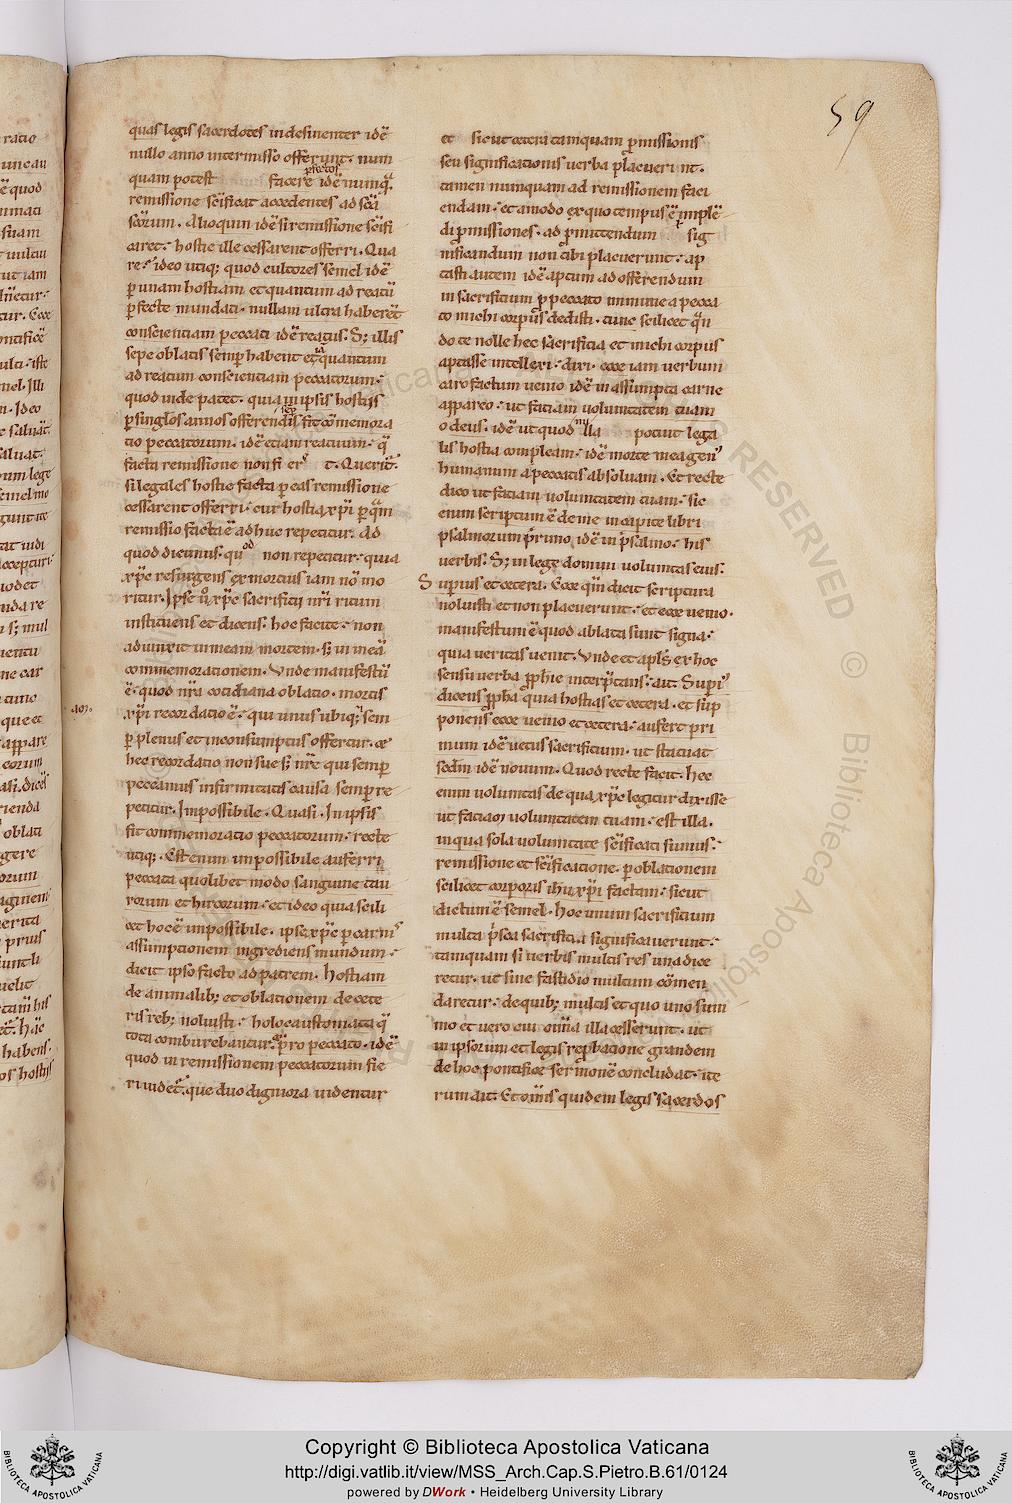 59
quas legis sacerdotes indesinenter idē
nullo anno intermisso offerunt. num
quam potest facere pfectos idē nunq̄.
remissione sc̄ificat accedentes ad sc̄a
sc̄orum. Alioquin idē si remissione sc̄ifi
caret. hostie ille cessarent offerri. Qua
re? ideo utiq; quod cultores semel idē
p unam hostiam et quantum ad reatū
pfecte mundati. nullam ultra haberēt
conscientiam peccati idē reatus. S; illis
sepe oblatis semp habent et quantum
ad reatum conscientiam peccatorum.
quod inde patet. quia in ipsis hostiis
p singlos annos offerendis fit cōmemora
tio peccatorum. idē etiam reatuum. q̄
facta remissione non fieret. Querit̄.
si legales hostie facta p eas remissione
cessarent offerri. cur hostia xp̄i p quā
remissio facta ē adhuc repetitur. Ad
quod dicimus. quod non repetitur. quia
xp̄c resurgens ex mortuis iam nō mo
ritur. Ipse ū xp̄c sacrificii nr̄i ritum
instituens et dicens. hoc facite. non
adiunxit in meam mortem. s; in meā
commemorationem. Unde manifestū
ē. quod nr̄a cotidiana oblatio. mortis
xp̄i recordatio ē. qui unus ubiq; sem
p plenus et inconsumptus offertur.
hec recordatio non sue s; nr̄e qui semp
peccamus infirmitatis causa semp re
petitur. Impossibile. Quasi. In ipsis
fit commemoratio peccatorum. recte
utiq;. Est enim impossibile auferri
peccata quolibet modo sanguine tau
rorum et hircorum. et ideo quia scili
cet hoc ē impossibile. ipse xp̄c p carnis
assumptionem ingrediens mundum.
dicit ipso facto ad patrem. Hostiam
de animalib; et oblationem de cete
ris reb; noluisti. holocaustomata q̄
tota comburebantur. pro peccato. idē
quod in remissionem peccatorum fie
ri videt̄. que duo digniora videntur
et sicut cetera tamquam pmissionis
seu significationis verba placuerint.
tamen numquam ad remissionem faci
endam. et amodo ex quo tempus ē imple
di pmissiones. ad pmittendum sig
nificandum non tibi placuerunt. ap
tasti autem idē aptum ad offerendum
in sacrificium p peccato immune a pecca
to michi corpus dedisti. tunc scilicet qn̄
do te nolle hec sacrificia et michi corpus
aptasse intellexi. dixi. ecce iam verbum
caro factum venio idē in assumpta carne
appareo. ut faciam voluntatem tuam
o deus. idē ut quod nulla potuit lega
lis hostia compleam. idē morte mea gen
humanum a peccatis absoluam. Et recte
dico ut faciam voluntatem tuam. sic
enim scriptum ē de me in capite libri
psalmorum primo idē in psalmo. his
verbis. S; in lege domini voluntas eius.
Supius et cetera. Ecce qn̄ dicit scriptura
noluisti et non placuerunt. et ecce venio.
manifestum ē quod ablata sunt signa.
quia veritas venit. Unde et apls ex hoc
sensu verba pphie interptans. ait. Supi
dicens ppha quia hostias et cetera. et sup
ponens ecce venio et cetera. aufert pri
mum idē vetus sacrificium. ut statuat
scdm idē novum. Quod recte facit. hec
enim voluntas de qua xp̄c legitur dixisse
ut faciam voluntatem tuam. est illa.
in qua sola voluntate sc̄ificati sumus.
remissione et sc̄ificatione. p oblationem
scilicet corporis ihu xp̄i factam. sicut
dictum ē semel. Hoc unum sacrificium
multa p̄sea sacrificia significaverunt.
tamquam si verbis multis res una dice
retur. ut sine fastidio multum cōmen
daretur. de quib; multis et quo uno sum
mo et vero cui om̄ia illa cesserunt. ut
in ipsorum et legis repbatione grandem
de hoc pontifice sermonē concludat. ite
rum ait. Et om̄is quidem legis sacerdos
Copyright © Biblioteca Apostolica Vaticana
http://digi.vatlib.it/view/MSS_Arch.Cap.S.Pietro.B.61/0124
powered by DWork • Heidelberg University Library
BIBLIOTECA APOSTOLICA VATICANA
BIBLIOTECA APOSTOLICA VATICANA